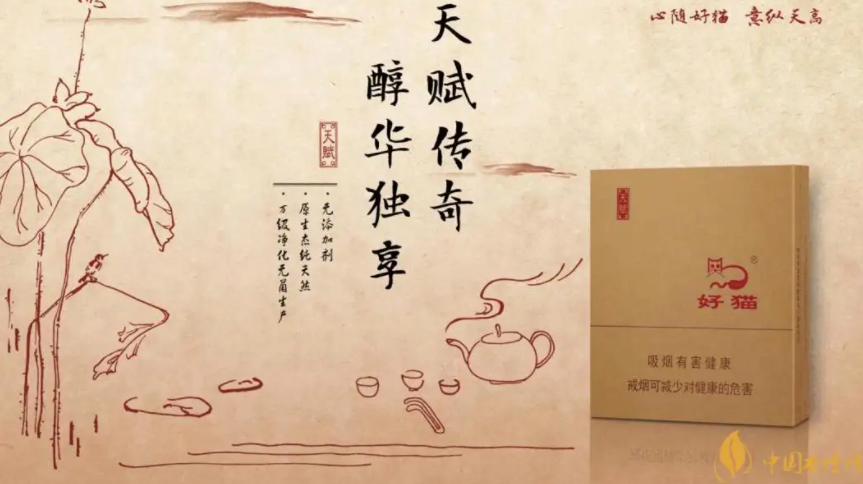 心随好猫 意纵天高
天赋传奇
醇华独享
天赋
·无添加剂
·原生态纯天然
·万级净化无菌生产
天赋
®
好猫
吸烟有害健康
戒烟可减少对健康的危害